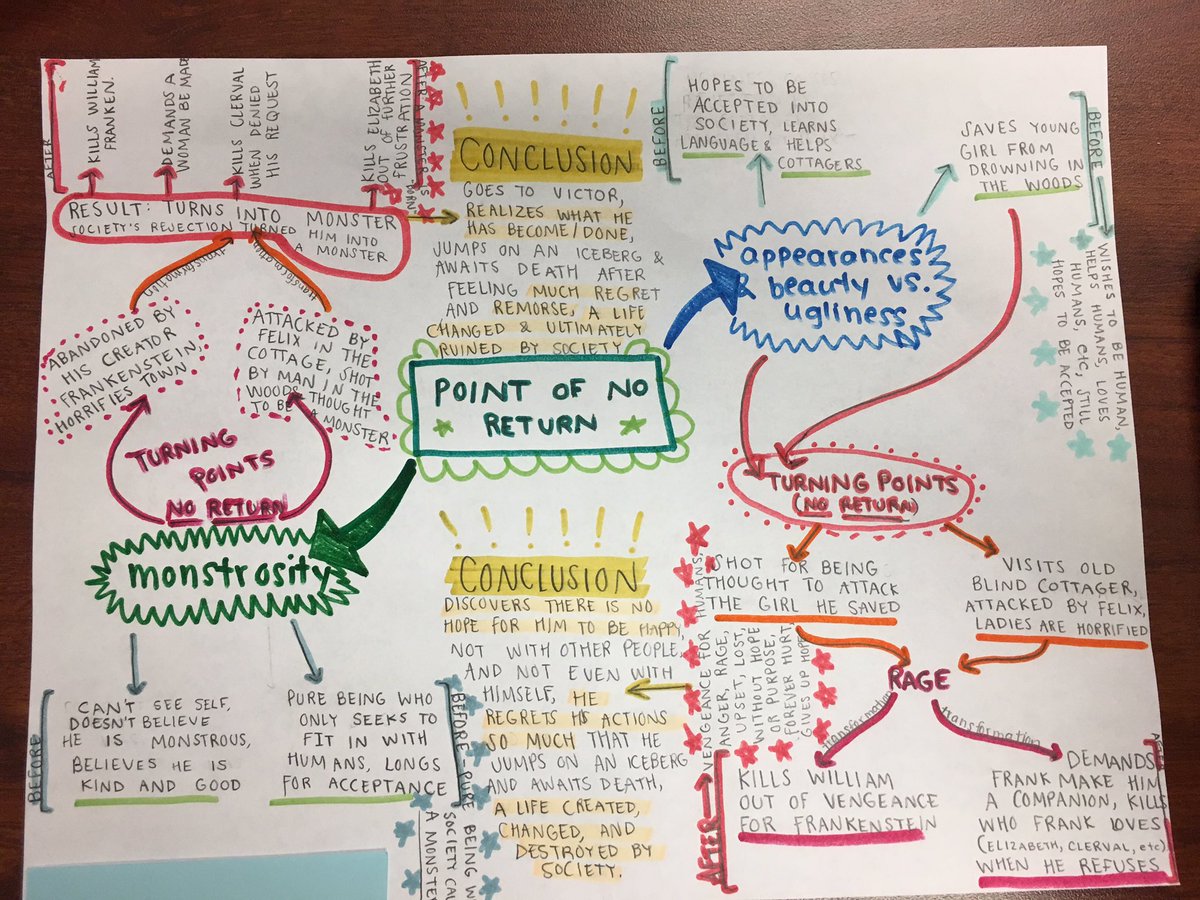 AFTER
KILLS WILLIAM
FRANKEN.
DEMANDS A
WOMAN BE MADE
KILLS CLERVAL
WHEN DENIED
HIS REQUEST
KILLS ELIZABETH
OUT OF FURTHER
FRUSTRATION
AFTER A MONSTER IS
BORN
RESULT: TURNS INTO MONSTER
SOCIETY'S REJECTION TURNED
HIM INTO
A MONSTER
transformation
transformation
ABANDONED BY
HIS CREATOR
FRANKENSTEIN,
HORRIFIES TOWN
ATTACKED BY
FELIX IN THE
COTTAGE, SHOT
BY MAN IN THE
WOODS THOUGHT
TO BE A MONSTER
TURNING
POINTS
NO RETURN
monstrosity
BEFORE
CAN'T SEE SELF,
DOESN'T BELIEVE
HE IS MONSTROUS,
BELIEVES HE IS
KIND AND GOOD
PURE BEING WHO
ONLY SEEKS TO
FIT IN WITH
HUMANS, LONGS
FOR ACCEPTANCE
BEFORE - PURE BEING W
SOCIETY CAL
A MONSTE
CONCLUSION
GOES TO VICTOR,
REALIZES WHAT HE
HAS BECOME/DONE,
JUMPS ON AN ICEBERG &
AWAITS DEATH AFTER
FEELING MUCH REGRET
AND REMORSE, A LIFE
CHANGED & ULTIMATELY
RUINED BY SOCIETY
POINT OF NO
RETURN
CONCLUSION
DISCOVERS THERE IS NO
HOPE FOR HIM TO BE HAPPY,
NOT WITH OTHER PEOPLE,
AND NOT EVEN WITH
HIMSELF, HE
REGRETS HIS ACTIONS
SO MUCH THAT HE
JUMPS ON AN ICEBERG
AND AWAITS DEATH,
A LIFE CREATED,
CHANGED, AND
DESTROYED BY
SOCIETY.
BEFORE
HOPES TO BE
ACCEPTED INTO
SOCIETY, LEARNS
LANGUAGE & HELPS
COTTAGERS
SAVES YOUNG
GIRL FROM
DROWNING IN
THE WOODS
BEFORE
WISHES TO BE HUMAN,
HELPS HUMANS, LOVES
HUMANS, etc, STILL
HOPES TO BE ACCEPTED
appearances
& beauty vs.
ugliness
TURNING POINTS
(NO RETURN)
SHOT FOR BEING
THOUGHT TO ATTACK
THE GIRL HE SAVED
VISITS OLD
BLIND COTTAGER,
ATTACKED BY FELIX,
LADIES ARE HORRIFIED
RAGE
transformation
transformation
AFTER
VENGEANCE FOR HUMANS,
ANGER, RAGE,
UPSET, LOST,
WITHOUT HOPE
OR PURPOSE,
FOREVER HURT,
GIVES UP HOPE
KILLS WILLIAM
OUT OF VENGEANCE
FOR FRANKENSTEIN
DEMANDS
FRANK MAKE HIM
A COMPANION, KILLS
WHO FRANK LOVES
(ELIZABETH, CLERVAL, etc)
WHEN HE REFUSES